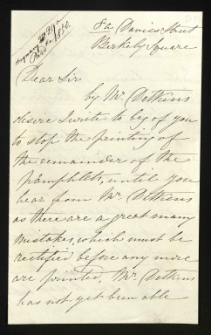 8a Davies Street
Berkeley Square
Dear Sir
by Mr. Detkins
desire I write to beg of you
to stop the printing of
the remainder of the
Pamphlets, until you
hear from Mr. Detkins
as there are a great many
mistakes, which must be
rectified before any more
are printed. Mr. Detkins
has not yet been able